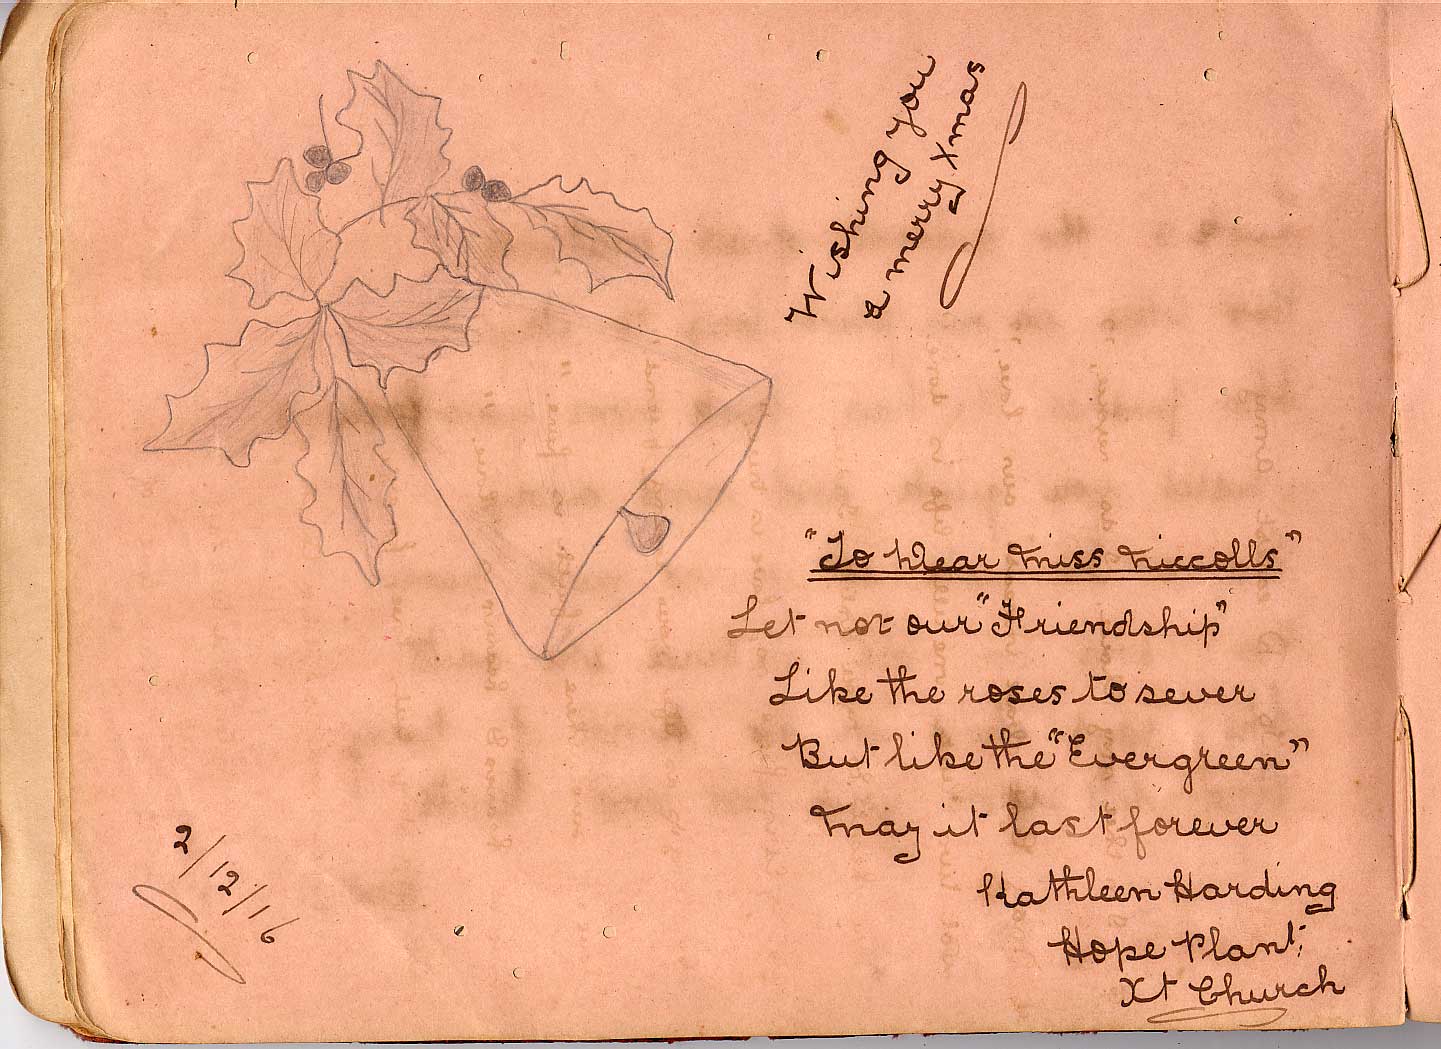 Wishing you
a merry Xmas
"To Dear Miss Niccolls"
Let not our "Friendship"
Like the roses to sever
But like the "Evergreen"
May it last forever
Kathleen Harding
Hope Plant:
Xt Church
2/12/16